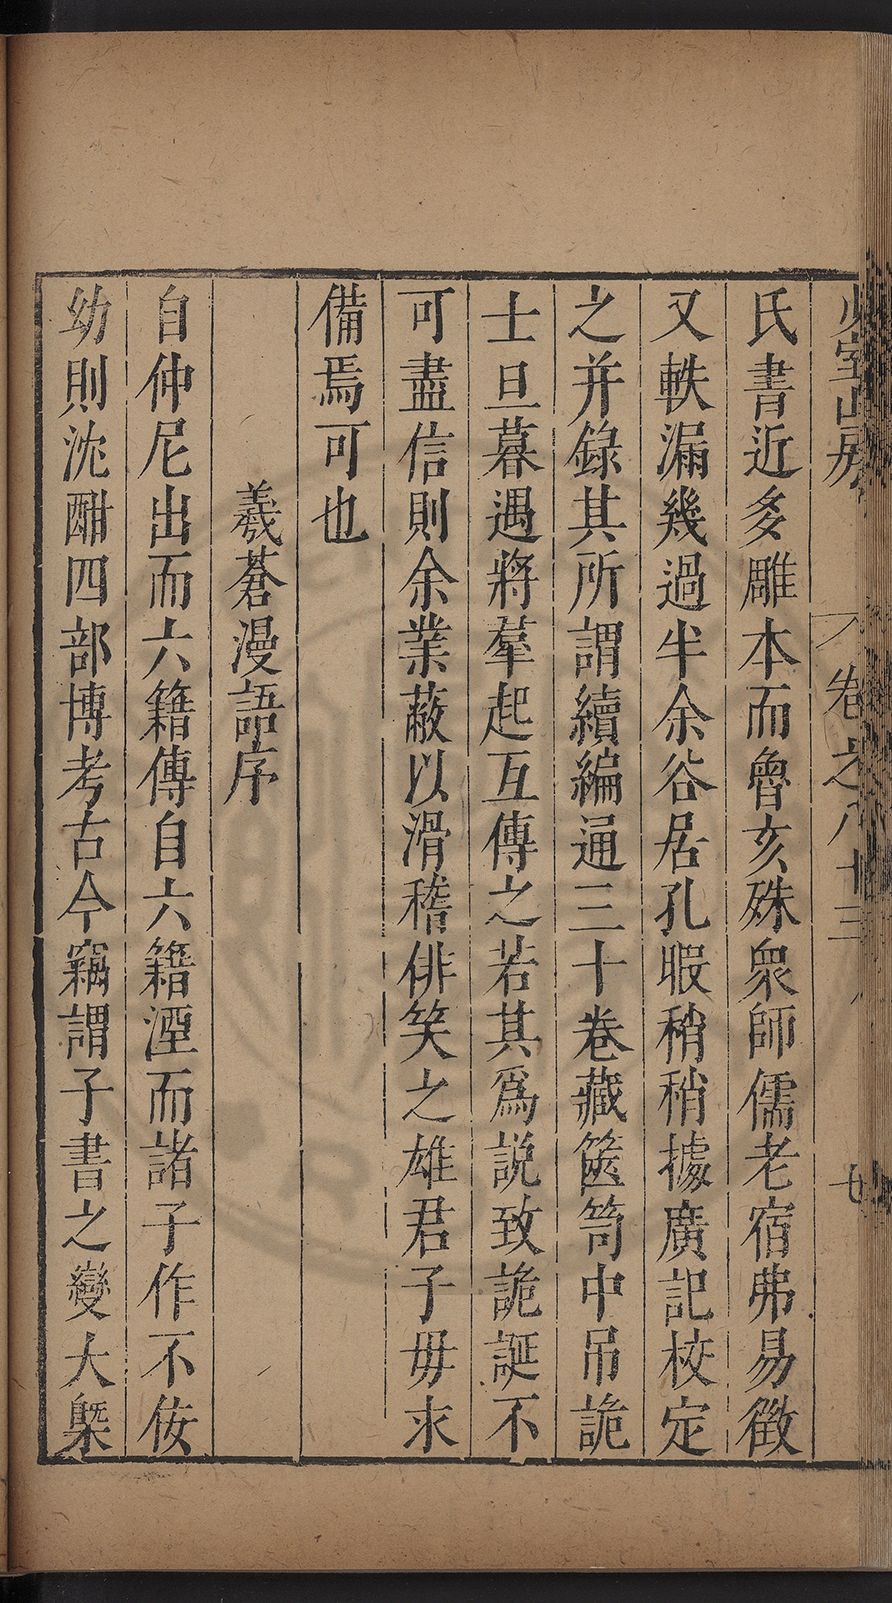 少室山房
卷之八十三
七
氏書近多雕本而魯亥殊衆師儒老宿弗易徵
又軼漏幾過半余谷居孔暇稍稍據廣記校定
之并錄其所謂續編通三十卷藏篋笥中吊詭
士旦暮遇將羣起互傳之若其爲説致詭誕不
可盡信則余業蔽以滑稽俳笑之雄君子毋求
備焉可也
羲蒼漫語序
自仲尼出而六籍傳自六籍湮而諸子作不佞
幼則沈酣四部博考古今竊謂子書之變大槩